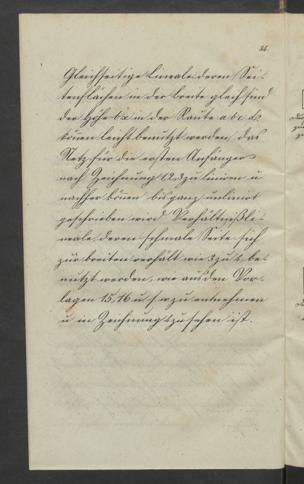 24.
Gleichseitige Lineale deren Sei-
tenflächen in der Breite gleich sind
der Höhe bx in der Raute abcd,
können leicht benutzt werden, das
Netz für die ersten Anfänger
nach Zeichnung zu liniren u
nachher bis ganz unlinirt
geschrieben wird Verhältniß Li-
neale, deren schmale Seite sich
zur breiten verhält wie 3 zu 5 be-
nutzt werden, wie aus den Vor-
lagen 15, 16 u f. zu entnehmen
u in Zeichnung zu sehen ist.